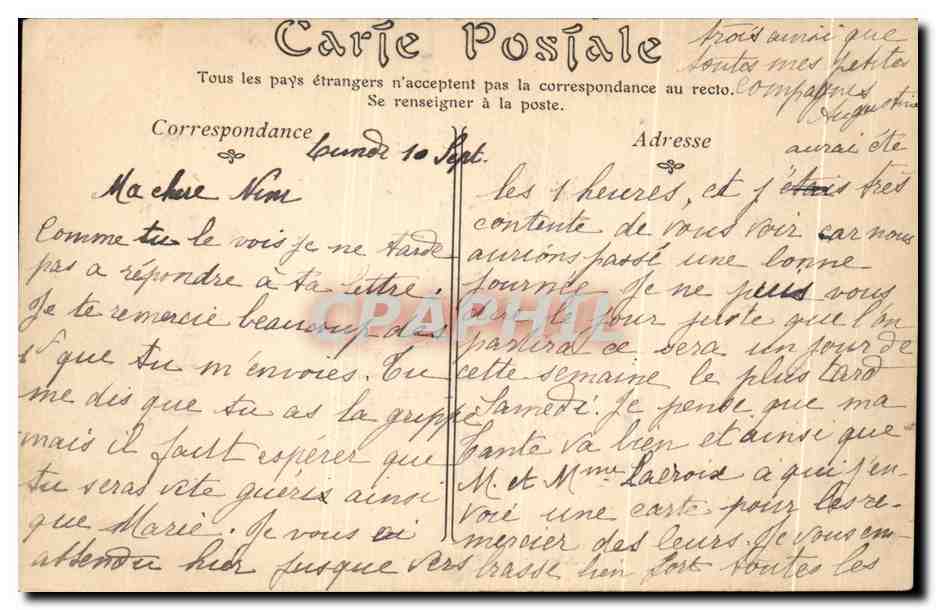 Carte Postale
Tous les pays étrangers n'acceptent pas la correspondance au recto.
Se renseigner à la poste.
Correspondance
Adresse
Lundi 10 Sept.
Ma chere Nini
Comme tu le vois je ne tarde
pas a répondre à ta lettre.
Je te remercie beaucoup des
que tu m'envoies. Tu
me dis que tu as la grippe
mais il faut espérer que
tu seras vite gueris ainsi
que Marie. Je vous ai
attendu hier jusque vers
les 1 heures, et j'étais très
aurai été
contente de vous voir car nous
aurions passé une bonne
journée. Je ne puis vous
dire le jour juste que l'on
partira ce sera un jour de
cette semaine le plus tard
Samedi. Je pense que ma
tante va bien et ainsi que
M. et Mme Lacroix a qui j'en-
voie une carte pour les re-
mercier des leurs. Je vous em-
brasse bien fort toutes les
trois ainsi que
toutes mes petites
compagnes
Augustine
CPAPHIL